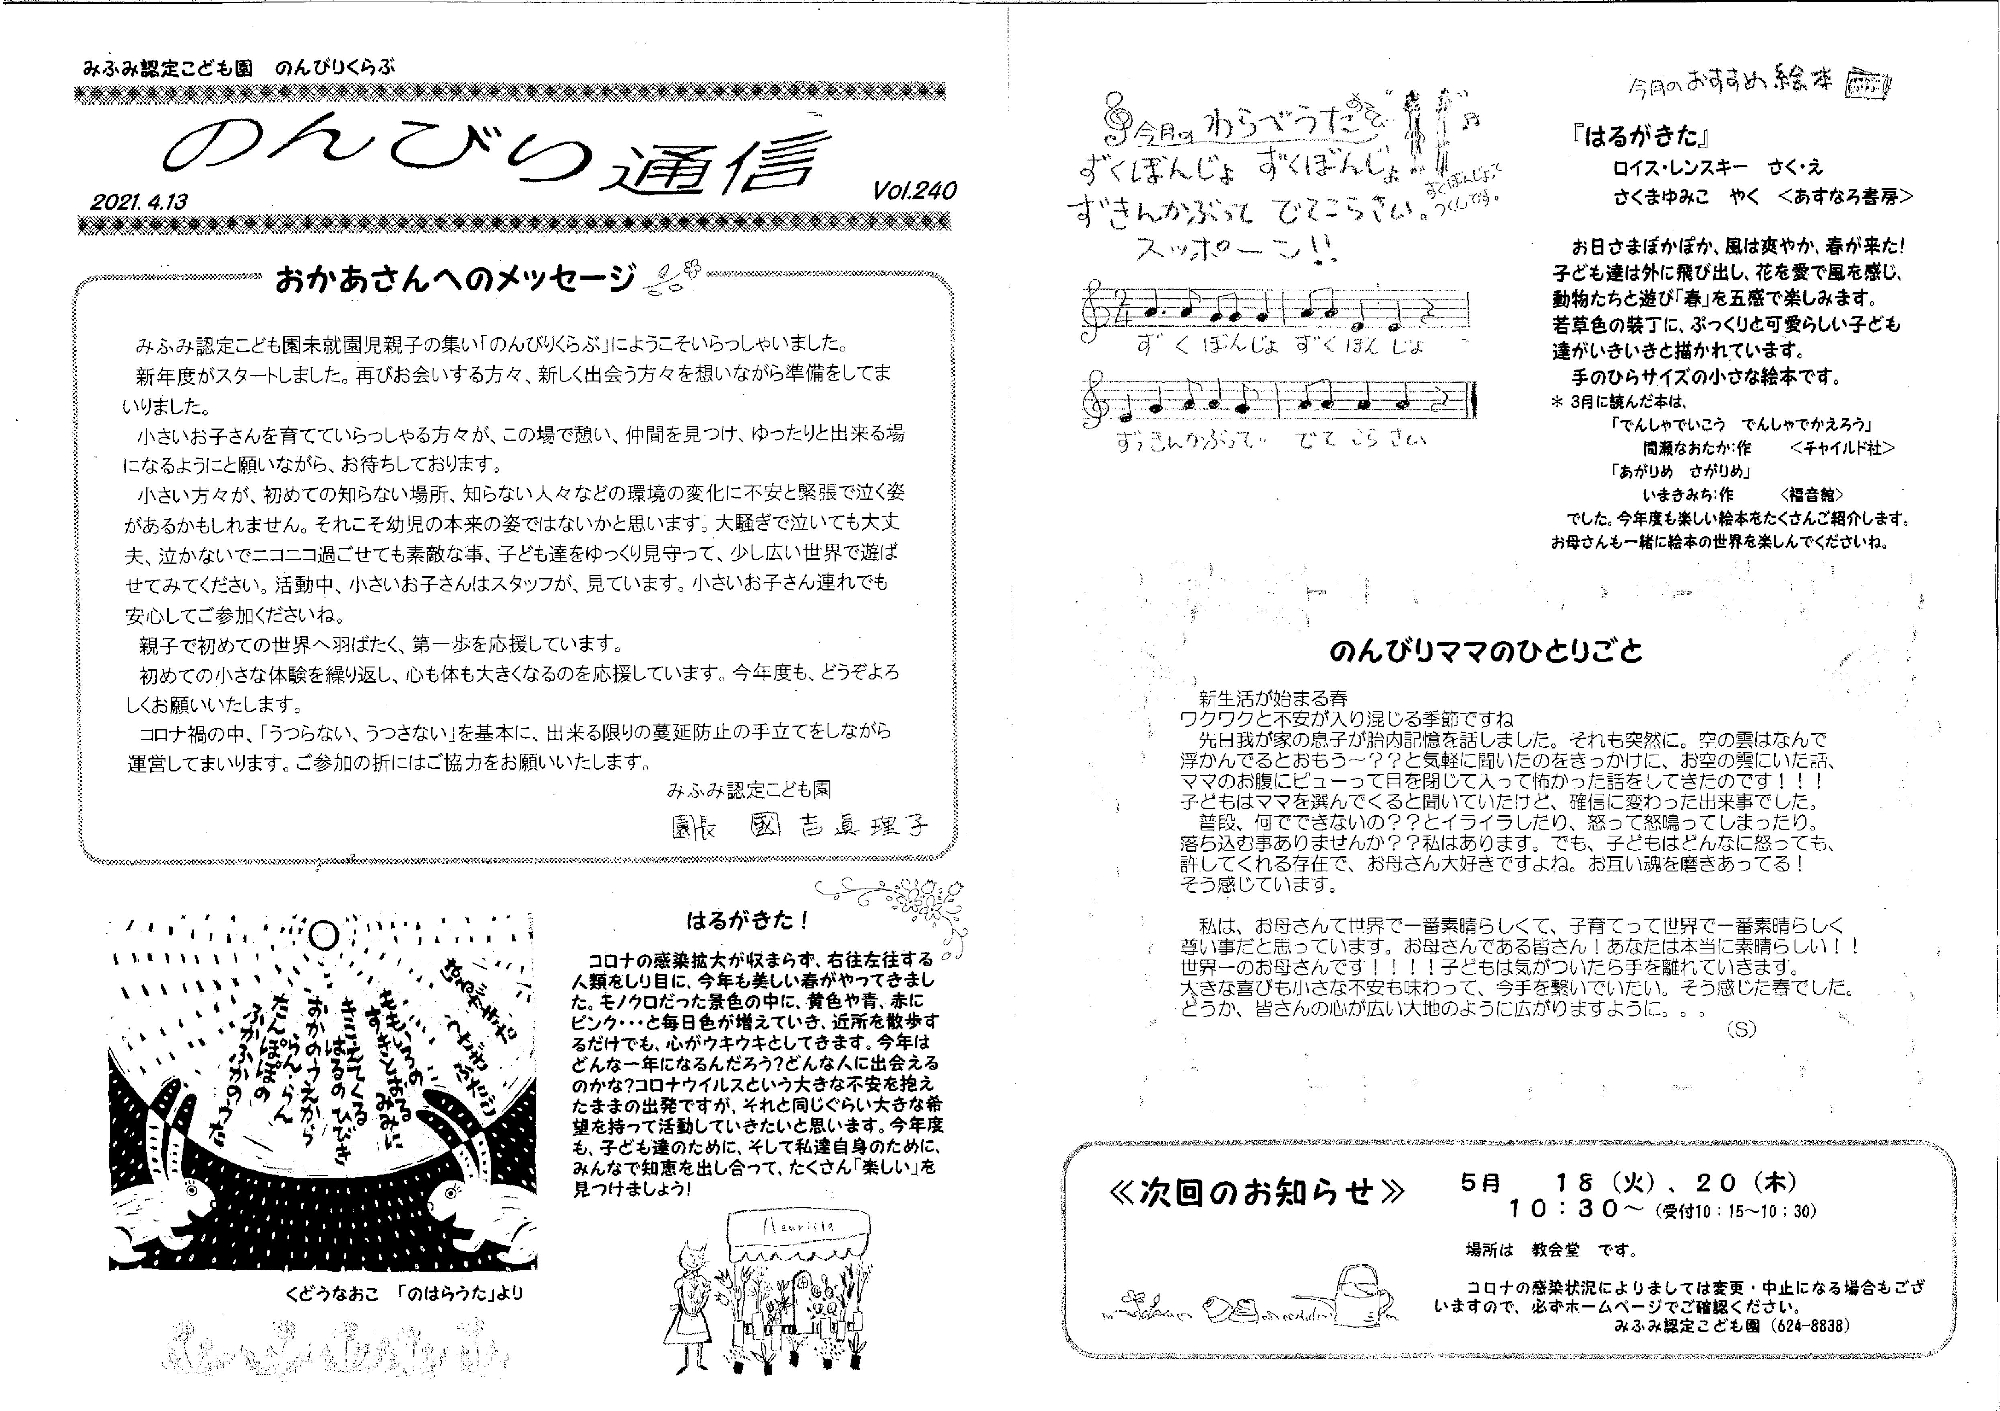 みふみ認定こども園　のんびりくらぶ
のんびり通信
2021.4.13
Vol.240
おかあさんへのメッセージ
みふみ認定こども園未就園児親子の集い「のんびりくらぶ」にようこそいらっしゃいました。
新年度がスタートしました。再びお会いする方々、新しく出会う方々を想いながら準備をしてま
いりました。
小さいお子さんを育てていらっしゃる方々が、この場で憩い、仲間を見つけ、ゆったりと出来る場
になるようにと願いながら、お待ちしております。
小さい方々が、初めての知らない場所、知らない人々などの環境の変化に不安と緊張で泣く姿
があるかもしれません。それこそ幼児の本来の姿ではないかと思います。大騒ぎで泣いても大丈
夫、泣かないでニコニコ過ごせても素敵な事、子ども達をゆっくり見守って、少し広い世界で遊ば
せてみてください。活動中、小さいお子さんはスタッフが、見ています。小さいお子さん連れでも
安心してご参加くださいね。
親子で初めての世界へ羽ばたく、第一歩を応援しています。
初めての小さな体験を繰り返し、心も体も大きくなるのを応援しています。今年度も、どうぞよろ
しくお願いいたします。
コロナ禍の中、「うつらない、うつさない」を基本に、出来る限りの蔓延防止の手立てをしながら
運営してまいります。ご参加の折にはご協力をお願いいたします。
みふみ認定こども園
園長　國吉眞理子
ききょうの
きこえてくる
はるの ひびき
おかのうえから
らん らん
たんぽぽの
ふかふかのうた
くどうなおこ　「のはらうた」より
はるがきた！
コロナの感染拡大が収まらず、右往左往する
人類をしり目に、今年も美しい春がやってきまし
た。モノクロだった景色の中に、黄色や青、赤に
ピンク・・・と毎日色が増えていき、近所を散歩す
るだけでも、心がウキウキとしてきます。今年は
どんな一年になるんだろう？どんな人に出会える
のかな？コロナウイルスという大きな不安を抱え
たままの出発ですが、それと同じぐらい大きな希
望を持って活動していきたいと思います。今年度
も、子ども達のために、そして私達自身のために、
みんなで知恵を出し合って、たくさん「楽しい」を
見つけましょう！
今月の わらべうた あそび
ずくぼんじょ ずくぼんじょ
ずきんかぶって でてこらさい。
スッポーン!!
ずくぼんじょって
つくしです。
ず く ぼんじょ ず くぼん じょ
ずきんかぶって でて こら さい
今月のおすすめ絵本
『はるがきた』
ロイス・レンスキー　さく・え
さくまゆみこ　やく　＜あすなろ書房＞
お日さまぽかぽか、風は爽やか、春が来た！
子ども達は外に飛び出し、花を愛で風を感じ、
動物たちと遊び「春」を五感で楽しみます。
若草色の装丁に、ぷっくりと可愛らしい子ども
達がいきいきと描かれています。
手のひらサイズの小さな絵本です。
＊ 3月に読んだ本は、
「でんしゃでいこう　でんしゃでかえろう」
間瀬なおたか：作　　＜チャイルド社＞
「あがりめ　さがりめ」
いまきみち：作　　＜福音館＞
でした。今年度も楽しい絵本をたくさんご紹介します。
お母さんも一緒に絵本の世界を楽しんでくださいね。
のんびりママのひとりごと
新生活が始まる春
ワクワクと不安が入り混じる季節ですね
先日我が家の息子が胎内記憶を話しました。それも突然に。空の雲はなんで
浮かんでるとおもう～？？と気軽に聞いたのをきっかけに、お空の雲にいた話、
ママのお腹にピューって目を閉じて入って怖かった話をしてきたのです！！！
子どもはママを選んでくると聞いていたけど、確信に変わった出来事でした。
普段、何でできないの？？とイライラしたり、怒って怒鳴ってしまったり。
落ち込む事ありませんか？？私はあります。でも、子どもはどんなに怒っても、
許してくれる存在で、お母さん大好きですよね。お互い魂を磨きあってる！
そう感じています。
私は、お母さんて世界で一番素晴らしくて、子育てって世界で一番素晴らしく
尊い事だと思っています。お母さんである皆さん！あなたは本当に素晴らしい！！
世界一のお母さんです！！！！子どもは気がついたら手を離れていきます。
大きな喜びも小さな不安も味わって、今手を繋いでいたい。そう感じた春でした。
どうか、皆さんの心が広い大地のように広がりますように。。。
（S）
≪次回のお知らせ≫
5月　　18（火）、20（木）
10：30～（受付10：15～10：30）
場所は　教会堂　です。
コロナの感染状況によりましては変更・中止になる場合もござ
いますので、必ずホームページでご確認ください。
みふみ認定こども園（624-8838）